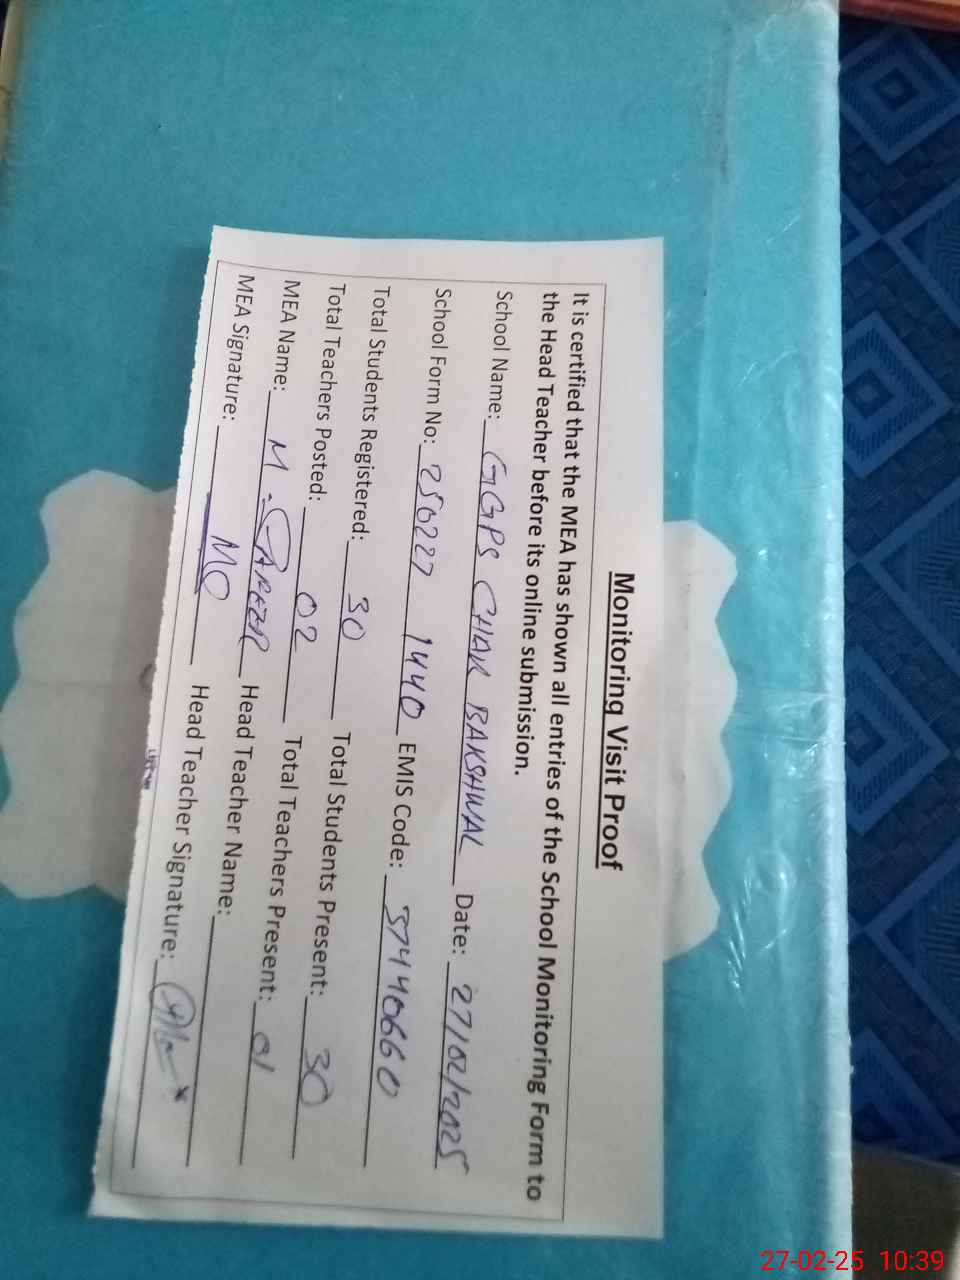 Monitoring Visit Proof
It is certified that the MEA has shown all entries of the School Monitoring Form to
the Head Teacher before its online submission.
School Name: GGPS CHAK BAKSHWAL Date: 27/02/2025
School Form No: 250227 1440 EMIS Code: 37440660
Total Students Registered: 30 Total Students Present: 30
Total Teachers Posted: 02 Total Teachers Present: 01
MEA Name: M. Head Teacher Name:
MEA Signature: Head Teacher Signature:
27-02-25 10:39